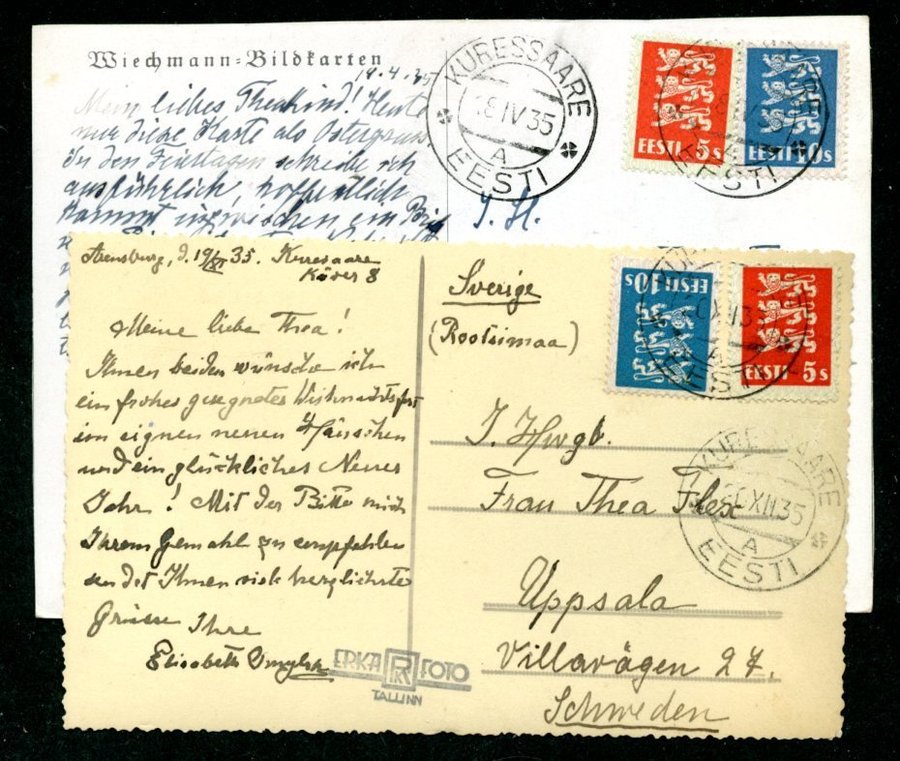 Wiechmann-Bildkarten
14.4.35
Mein liebes Theakind! Heute
nur diese Karte als Ostergruss
In den Feiertagen schreibe ich
ausführlich, hoffentlich
kommt inzwischen ein Brief
J. H.
KURESSAARE
18 IV 35
A
EESTI
EESTI 5s
EESTI 10s
Arensburg, d. 19/XII 35. Kuressaare
Meine liebe Thea!
Ihnen beiden wünsche ich
ein frohes gesegnetes Weihnachtsfest
im eignen neuen Häuschen
und ein glückliches Neues
Jahr! Mit der Bitte mich
Ihrem Gemahl zu empfehlen
sendet Ihnen viele herzlichste
Grüsse Ihre
Elisabeth
ERKA RK FOTO
TALLINN
Sverige
(Rootsimaa)
EESTI 10s
EESTI 5s
KURESSAARE
20 XII 35
A
EESTI
Frau Thea Flex
Uppsala
Villavägen 27.
Schweden